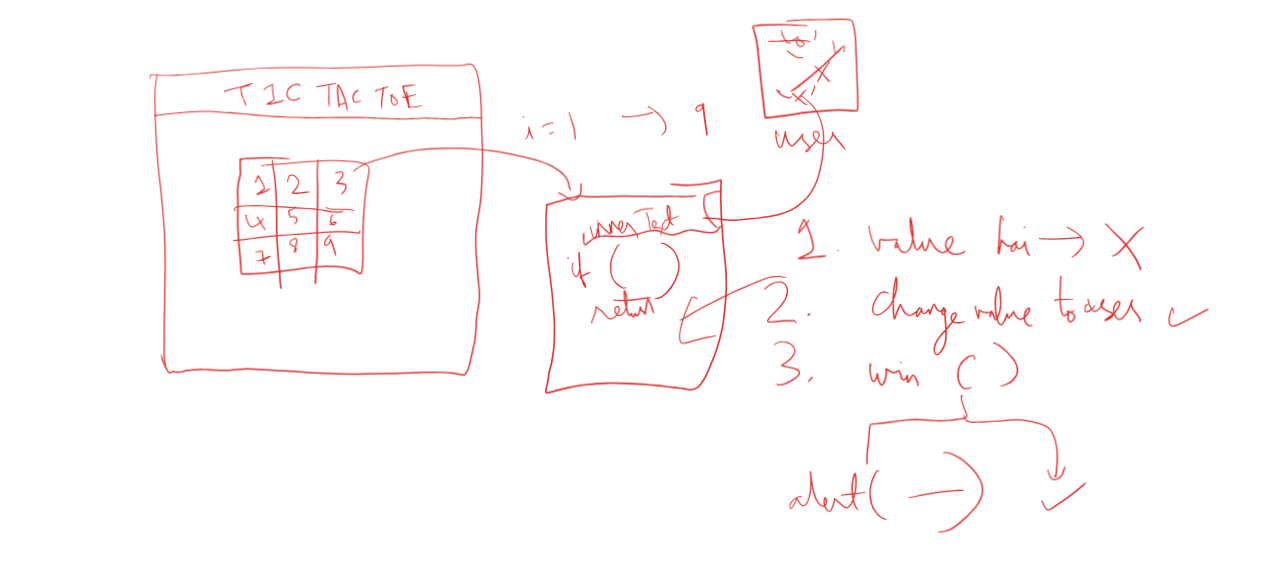 TIC TAC TOE
1 2 3
4 5 6
7 8 9
i = 1 → 9
'o'
X
'X'
user
inner Text
if ( )
return
1. value hai → X
2. change value to user ✓
3. win ( )
alert( — ) ✓